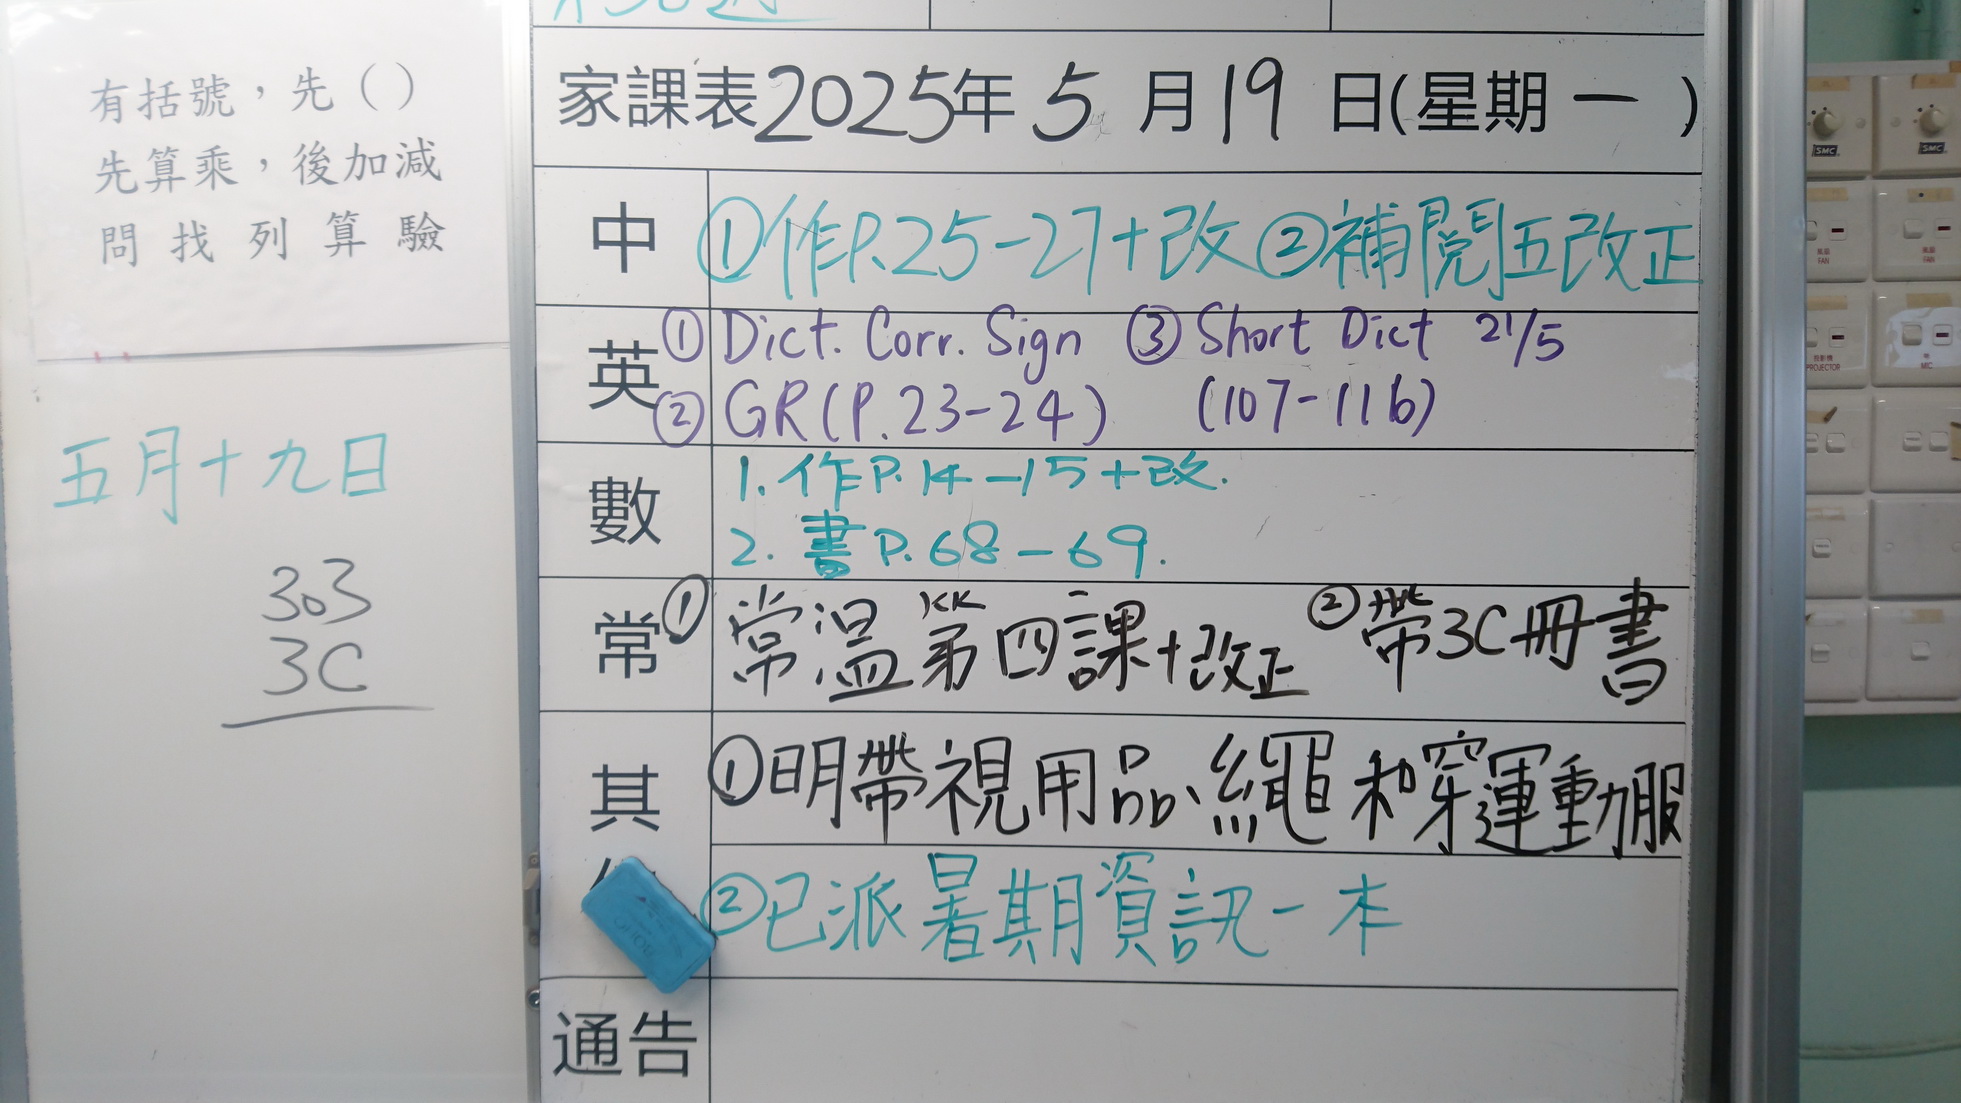 有括號，先（ ）
先算乘，後加減
問找列算驗
五月十九日
303
3C
家課表2025年5月19日(星期一)
中 ①作P.25-27+改 ②補閱五改正
英 ① Dict. Corr. Sign ③ Short Dict 21/5
② GR(P.23-24) (107-116)
數 1. 作P.14-15+改.
2. 書P.68-69.
常 ① 常溫第四課+改正 ②帶3C冊書
其 ①明帶視用品、繩和穿運動服
②已派暑期資訊一本
通告
SMC
SMC
風扇
FAN
風扇
FAN
投影機
PROJECTOR
MIC